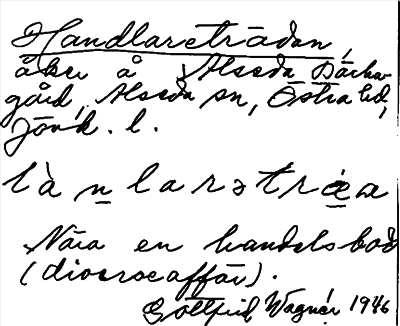 Handlareträdan,
åker å Alseda Därke-
gård, Alseda sn, Östra hd,
Jönk. l.
Nära en handelsbod
(diverseaffär).
Gottfrid Wagnér 1946